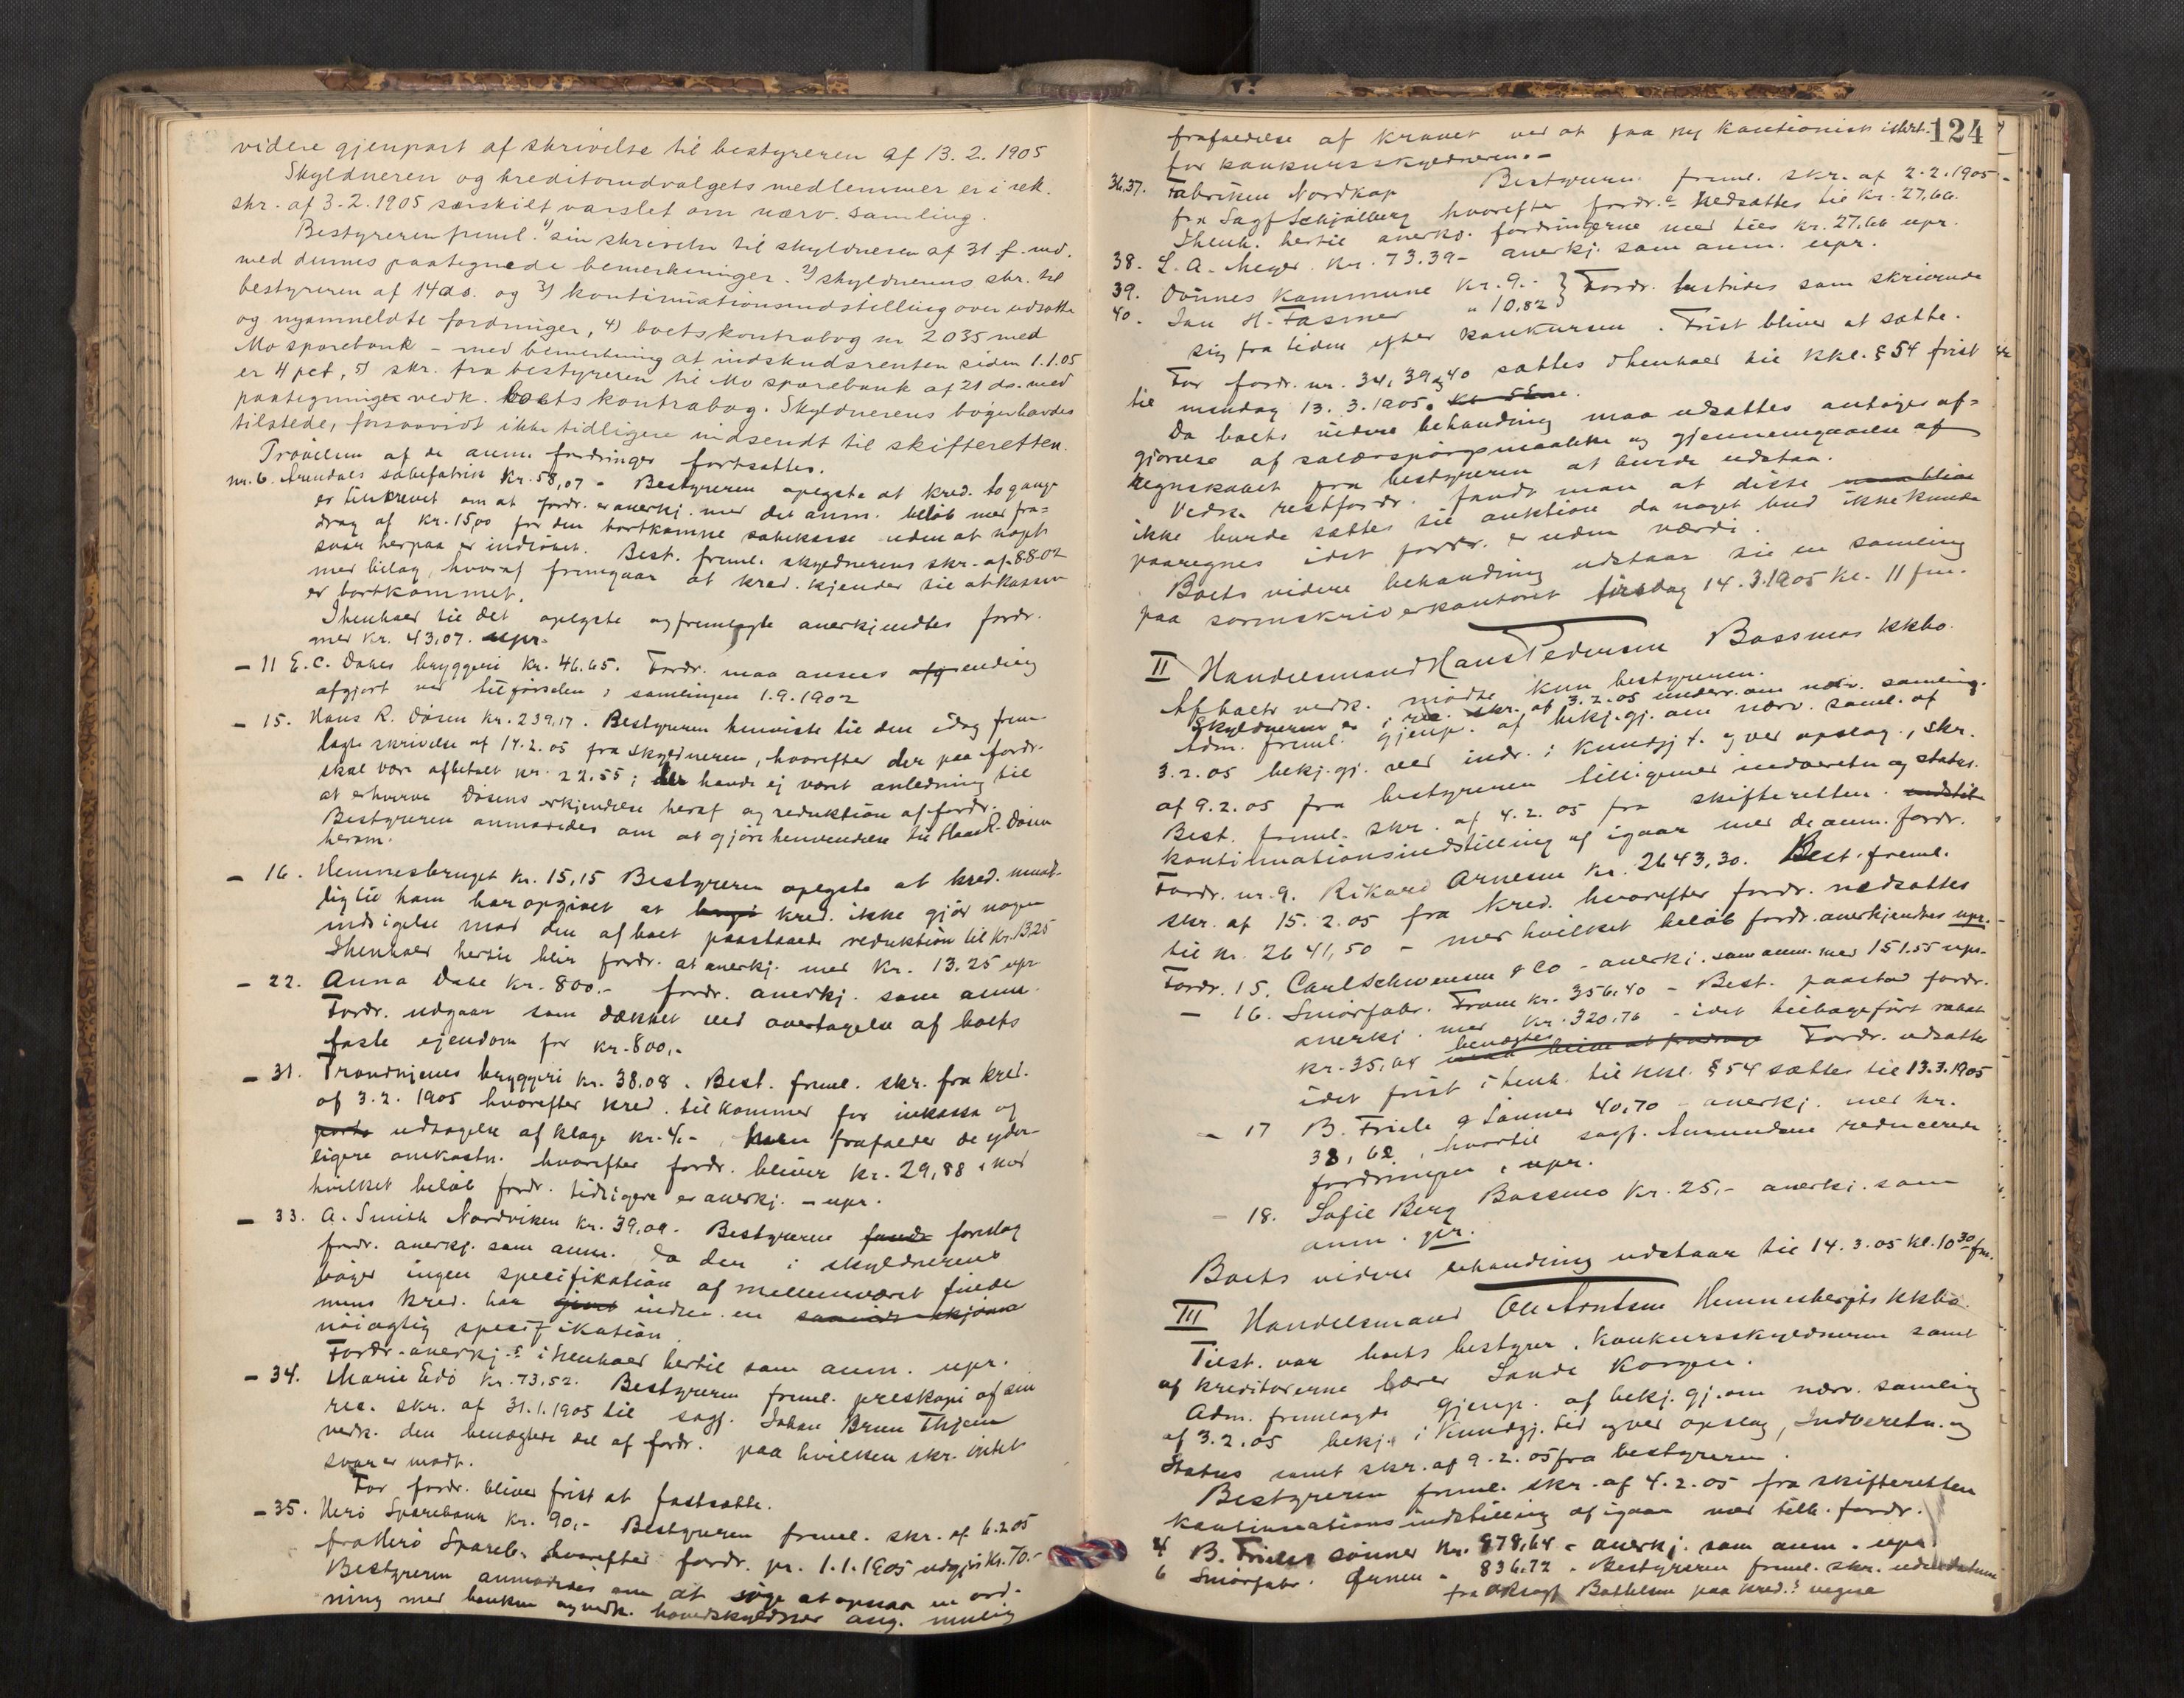 videre gjenpart af skrivelse til bestyreren af 13.2.1905
Skyldneren og kreditorudvalgets medlemmer er i rek.
skr. af 3-2.1905 særskilt varslet om nærv. samling.
Bestyreren freml. 1) sin skrivelse til skyldneren af 31 f. md.
med dennes paategnede bemerkninger. 2) skyldnerens skr. til
bestyreren af 14 ds. og 3) kontinuationsindstilling over udsatte
og nyanmeldte fordringer, 4) boets kontrabog nr 2035 med
Mo sparebank - med bemerkning at indskudsrenten siden 1.1.05
er 4 pct, 5) skr. fra bestyreren til Mo sparebank af 21 ds. med
paategninger vedk. boets kontrabog. Skyldnerens bøger havdes
tilstede, forsaavidt ikke tidligere indsendt til skifteretten.
Prøvelsen af de anm. fordringer fortsattes.
nr. 6. Arendals sæbefabrik kr. 58,07 - Bestyreren oplyste at kred. to gange
er tilskrevet om at fordr. er anerkj. med det anm. beløb med fra=
drag af kr. 15,00 for den bortkomne sæbekasse uden at noget
svar herpaa er indløbet. Best. freml. skyldnerens skr. af 8.8.02
med bilag, hvoraf fremgaar at kred. kjender til at kassen
er bortkommet.
I henhold til det oplyste og fremlagte anerkjendtes fordr.
med kr. 43,07. upr.
- 11 E.C. Dahls bryggeri kr. 46.65. Fordr. maa ansees endelig
afgjort ved tilførselen i samlingen 1.9.1902
- 15. Hans R. Døsen kr. 239,17. Bestyreren henviste til den idag frem-
lagte skrivelse af 14.2.05 fra skyldneren, hvorefter der paa fordr.
skal være afbetalt kr. 22.55; der havde ej været anledning til
at erhverve Døsens erkjendelse heraf og reduktion af fordr.
Bestyreren anmodedes om at gjøre henvendelse til Hans R. Døsen
herom.
- 16. Hemnesbruget kr. 15,15 Bestyreren oplyste at kred. mundt-
lig til ham har opgivet at kred. ikke gjør nogen
indsigelse mod den af boet paastaaede reduktion til kr. 13.25
I henhold hertil blir fordr. at anerkj. med kr. 13.25 upr
- 22. Anna Dahl kr. 800.- fordr. anerkj. som anm.
Fordr. udgaar som dækket ved overtagelse af boets
faste ejendom for kr. 800,-
- 31. Trondhjems bryggeri kr. 38.08. Best. freml. skr. fra kred.
af 3.2.1905 hvorefter kred. tilkommer for inkasso og
porto udtagelse af klage kr. 4.- men frafalder de yder-
ligere omkostn. hvorefter fordr. bliver kr. 29,88, med
hvilket beløb fordr. tidligere er anerkj. - upr.
- 33. A. Smith Nordviken kr. 39,09. Bestyreren fandt foreslog
fordr. anerkj. som anm. da den i skyldnerens
bøger ingen specifikation af mellemværet findes
mens kred. har givet indsen. en
nøiagtig specifikation.
Fordr. anerkj.s i henhold hertil som anm. upr.
- 34. Marie Edø kr. 73,52. Bestyreren freml. preskopi af sin
rec. skr. af 31.1.1905 til sagf. Johan Brun Thjem
vedk. den benægtede del af fordr. paa hvilken skr. intet
svar er modt.
For fordr. bliver frist at fastsætte.
- 35. Herø Sparebank kr. 90,- Bestyreren freml. skr. af 6.2.05
fra Herø Spareb. hvorefter fordr. pr. 1.1.1905 udgjør kr. 70.-
Bestyreren anmodedes om at søge at opnaa en ord-
ning med banken og vedk. hovedskyldner ang. mulig
124
frafaldelse af kravet ved at faa ny kautionist istedet
for konkursskyldneren. -
36.37. Fabriken Nordkap Bestyreren freml. skr. af 2.2.1905 -
fra Sagf Schjølberg hvorefter fordr.e nedsættes til kr. 27,66.
I henh. hertil anerkj. fordringerne med tils kr. 27,66 upr.
38. L.A. Meyer kr. 73.39 - anerkj som anm. upr.
39. Dønnes kommune kr. 9.- } Fordr. bestrides som skrivende
40. Jan H. Fasmer " 10,82 }
sig fra tiden efter konkursen. Frist bliver at sætte.
For fordr. nr. 34, 39 og 40 sættes i henhold til kkl. § 54 frist
til mandag 13.3.1905.
Da boets videre behandling maa udsættes antoges af=
gjørelse af salærspørgsmaalene og gjennemgaaelse af
regnskabet fra bestyreren at burde udstaa.
Vedk. restfordr. fandt man at disse
ikke burde sættes til auktion da noget bud ikke kunde
paaregnes idet fordr. er uden værdi.
Boets videre behandling udstaar til en samling
paa sorenskriverkontoret tirsdag 14.3.1905 kl. 11 fm.
II Handelsmand Hans Pedersen Bossmos kkbo.
Af boets vedk. mødte kun bestyreren.
Skyldneren er i rec. skr. af 3.2.05 underr. om nærv. samling.
Adm. freml. gjenp. af bekj.gj. om nærv. saml. af
3.2.05 bekj.gj. ved indr. i kundgj t. og ved opslag., skr.
af 9.2.05 fra bestyreren tilligemed indberetn og status.
Best. freml. skr. af 4.2.05 fra skifteretten
kontinuationsindstilling af igaar med de anm. fordr.
Fordr. nr. 9. Rikard Arnesen kr. 2643,30. Best. freml.
skr. af 15.2.05 fra kred. hvorefter fordr. nedsættes
til kr. 2641,50 - med hvilket beløb fordr. anerkjendtes upr. -
Fordr. 15. Carl Schwensen & Co - anerkj. som anm. med 151.55 upr.
- 16. Smørfabr. Fram kr. 356,40 - Best. paastod fordr.
anerkj. med kr. 320,76 - idet tilbageført rabat
kr. 35,64 benægtes Fordr. udsattes
idet frist i henh. til kkl. § 54 sættes til 13.3.1905
- 17 B. Friele & Sønner 40,70 - anerkj. med kr.
38,62, hvortil sagf. Amundsen reducerede
fordringen, upr.
- 18. Sofie Berg Bossmo kr. 25,- anerkj. som
anm. upr.
Boets videre behandling udstaar til 14.3.05 kl. 10 30 fm.
III Handelsmand Ole Arntsen Hemnesbergets kkbo.
Tilst. var boets bestyrer, konkursskyldneren samt
af kreditorerne Lande Korgen.
Adm. fremlagde gjenp. af bekj.gj. om nærv. samling
af 3.2.05 bekj. i Kundgj. tid og ved opslag, Indberetn. og
Status samt skr. af 9.2.05 fra bestyreren.
Bestyreren freml. skr. af 4.2.05 fra skifteretten
kontinuationsindstilling af igaar med tilh. fordr.
4 B. Frieles sønner kr. 878,64 - anerkj. som anm. upr
6 Smørfabr. Ørnen " 836.72 - Bestyreren freml. skr. uden datum
fra Oksagf Bothelsen paa kred.s vegne